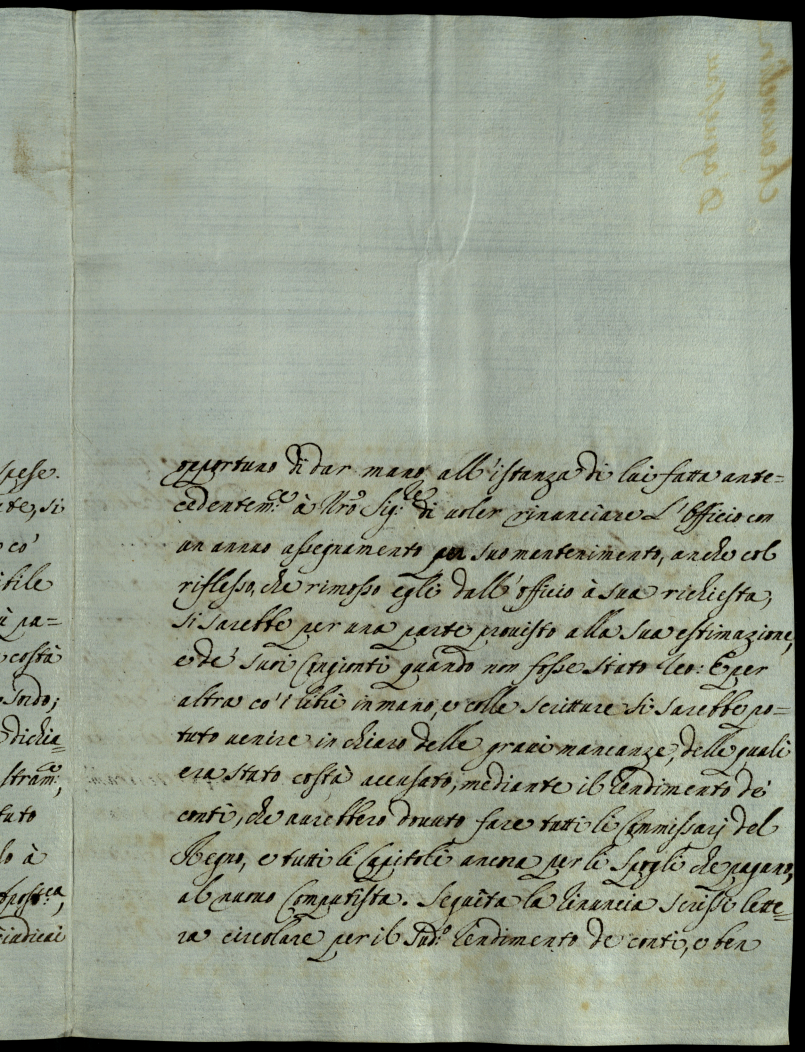 spese.
ate, si
co'
tile
ù pa=
costà
Sordo;
dichia=
stram:te,
tuto
lo à
iudicai
opportuno di dar mano all'istanza di lui fatta ante=
cedentem:te à Nro Sig:re di voler rinunciare L'Officio con
un annuo assegnamento per suo mantenimento, anche col
riflesso, che rimosso egli dall'officio à sua richiesta,
si sarebbe per una parte provisto alla sua estimazione,
e de' suoi Congionti quando non fosse stato Reo: E per
altra co' i libri in mano, e colle scritture si sarebbe po=
tuto venire in chiaro delle gravi mancanze, delle quali
era stato costà accusato, mediante il Rendimento de'
conti, che avrebbero dovuto fare tutti li Commissarj del
Regno, e tutti li Capitoli ancora per li Spogli che pagano,
al nuovo Computista. Seguita la Rinuncia scrissi lette=
ra circolare per il Sud:o Rendimento de conti, e ben